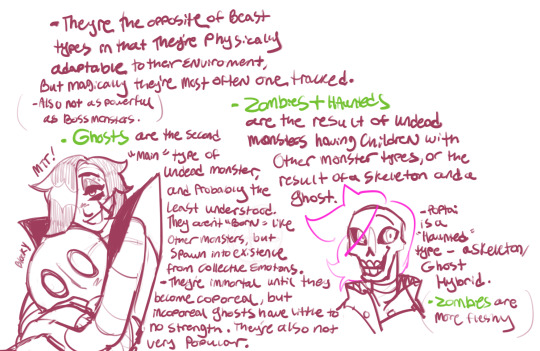 - They're the opposite of Beast
types in that they're physically
adaptable to their enviroment,
but magically they're most often one tracked.
- Also not as powerful
as Boss monsters.
- Ghosts are the second
"main" type of
undead monster,
and probably the
least understood.
They aren't "Born" like
other monsters, but
spawn into existence
from collective emotions.
- They're immortal until they
become coporeal, but
incoporeal ghosts have little to
no strength. They're also not
very popular.
MTT!
Blooky
- Zombies + Haunteds
are the result of undead
monsters having children with
other monster types, or the
result of a skeleton and a
ghost.
- Poptai
is a
"Haunted"
type - a skeleton/
Ghost
Hybrid.
- Zombies are
more fleshy